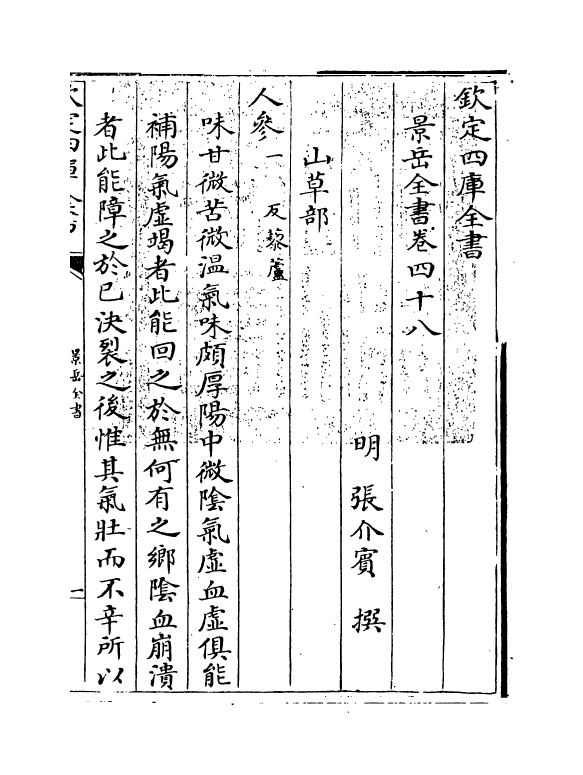 欽定四庫全書
景岳全書卷四十八
明 張介賓 撰
山草部
人參一 反藜蘆
味甘微苦微溫氣味頗厚陽中微陰氣虛血虛俱能
補陽氣虛竭者此能回之於無何有之鄉陰血崩潰
者此能障之於已決裂之後惟其氣壯而不辛所以
欽定四庫全書
景岳全書
一